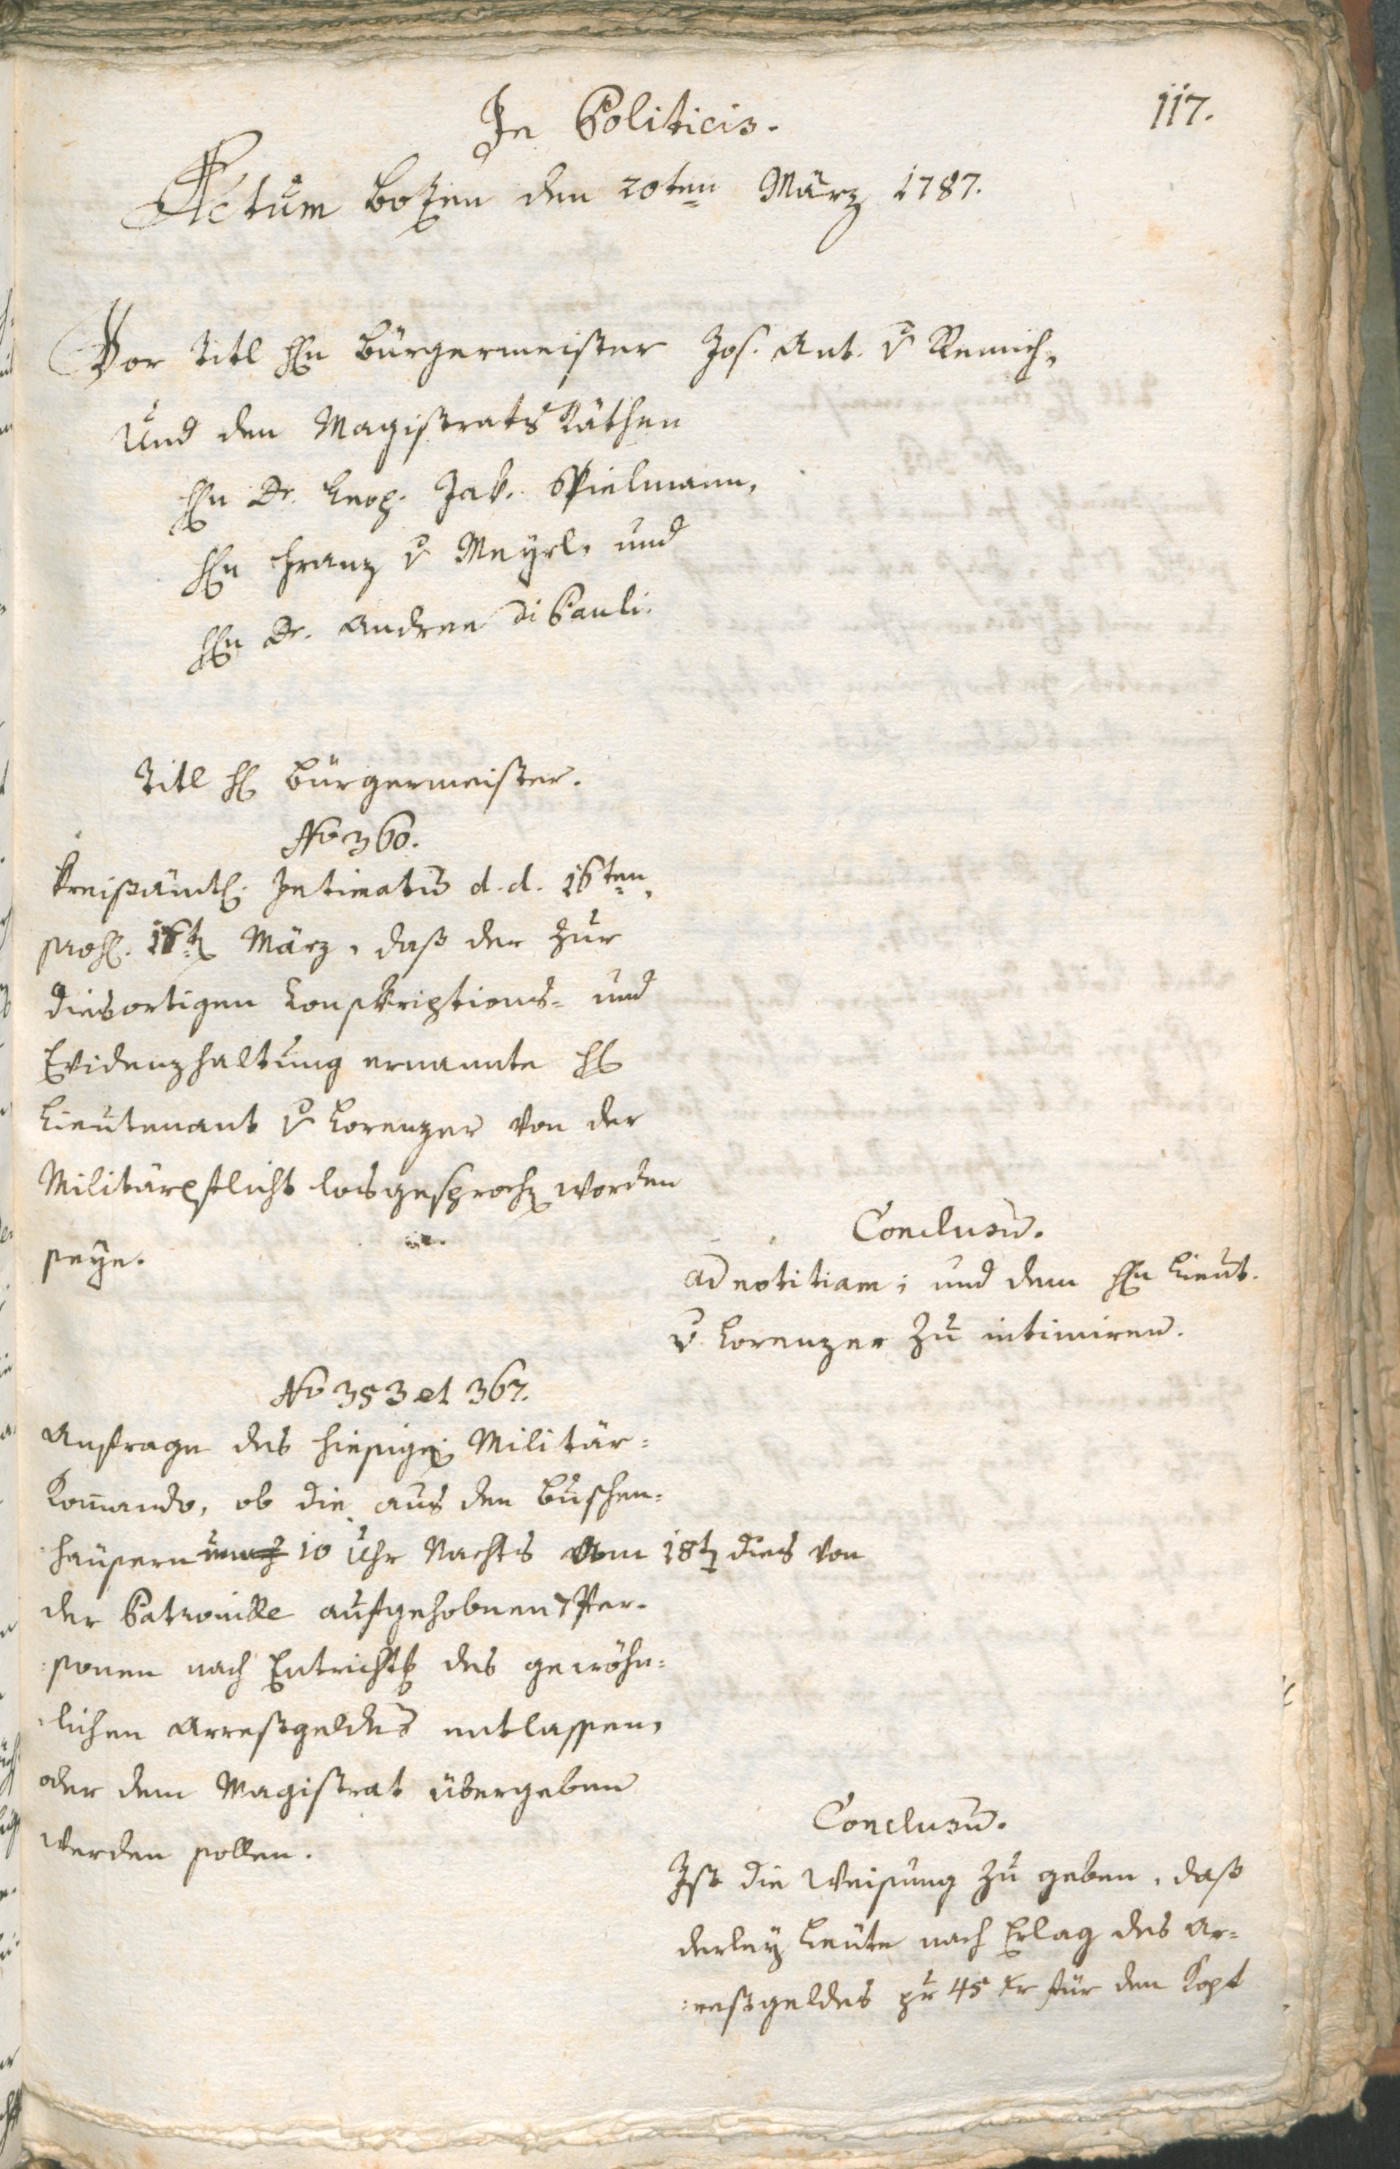 117.
In Politicis.
Actum Bozen den 20ten März 1787.
Vor Titl Hn Bürgermeister Jos. Ant. v Remich,
Und den Magistrats Räthen
Hn Dr. Leop. Jak. Spielmann,
Hn Franz v Meyrl, und
Hn Dr. Andree Di Pauli.
Titl H Bürgermeister.
No 360.
Kreißämtl. Intimatum d. d. 16ten,
März, daß der zur
diesortigen Conskriptions- und
Evidenzhaltung ernannte H
Lieutenant v Lorenzer von der
Militärpflicht losgesproch worden
seye.
Conclusum.
ad notitiam; und dem Hn Lieut.
v. Lorenzer zu intimiren.
No 353 et 367.
Anfrage des hiesigen Militär-
Kommando, ob die aus den Buschen-
häusern 10 Uhr Nachts am 18t dies von
der Patrouille aufgehobnen Per-
sonen nach Entricht des gewöhn-
lichen Arrestgeldes entlassen,
oder dem Magistrat übergeben
werden sollen.
Conclusum.
Ist die Weisung zu geben, daß
derley Leute nach Erlag des Ar-
restgeldes pr 45 Kr für den Kopf